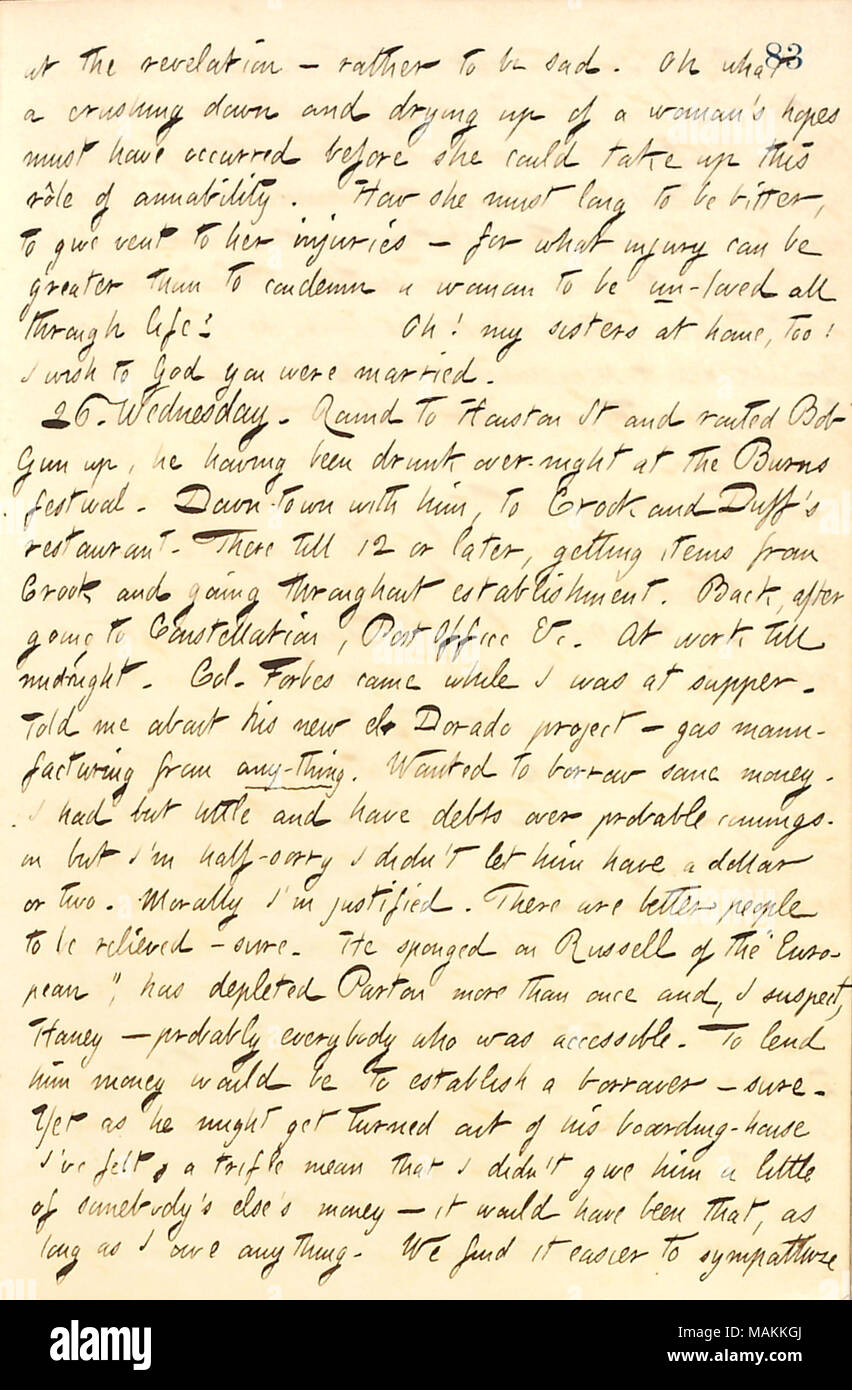 83
at the revelation — rather to be sad. Oh what
a crushing down and drying up of a woman's hopes
must have occurred before she could take up this
rôle of amiability. How she must long to be bitter,
to give vent to her injuries — for what injury can be
greater than to condemn a woman to be un-loved all
through life! Oh! my sisters at home, too!
I wish to God you were married.
26. Wednesday. Round to Houston St and routed Bob
Gun up, he having been drunk over-night at the Burns
festival. Down-town with him, to Crook and Duff's
restaurant. There till 12 or later, getting items from
Crook and going throughout establishment. Back, after
going to Constellation, Post Office &c. At work till
midnight. Col. Forbes came while I was at supper.
Told me about his new el Dorado project — gas manu-
facturing from any-thing. Wanted to borrow some money.
I had but little and have debts over probable comings-
in but I'm half-sorry I didn't let him have a dollar
or two. Morally I'm justified. There are better people
to be relieved — sure. He sponged on Russell of the "Euro-
pean", has depleted Parton more than once and, I suspect,
Haney — probably everybody who was accessible. To lend
him money would be to establish a borrower — sure.
Yet as he might get turned out of his boarding-house
I've felt a trifle mean that I didn't give him a little
of somebody's else's money — it would have been that, as
long as I owe anything. We find it easier to sympathize
alamy
Image ID: MAKKGJ
www.alamy.com